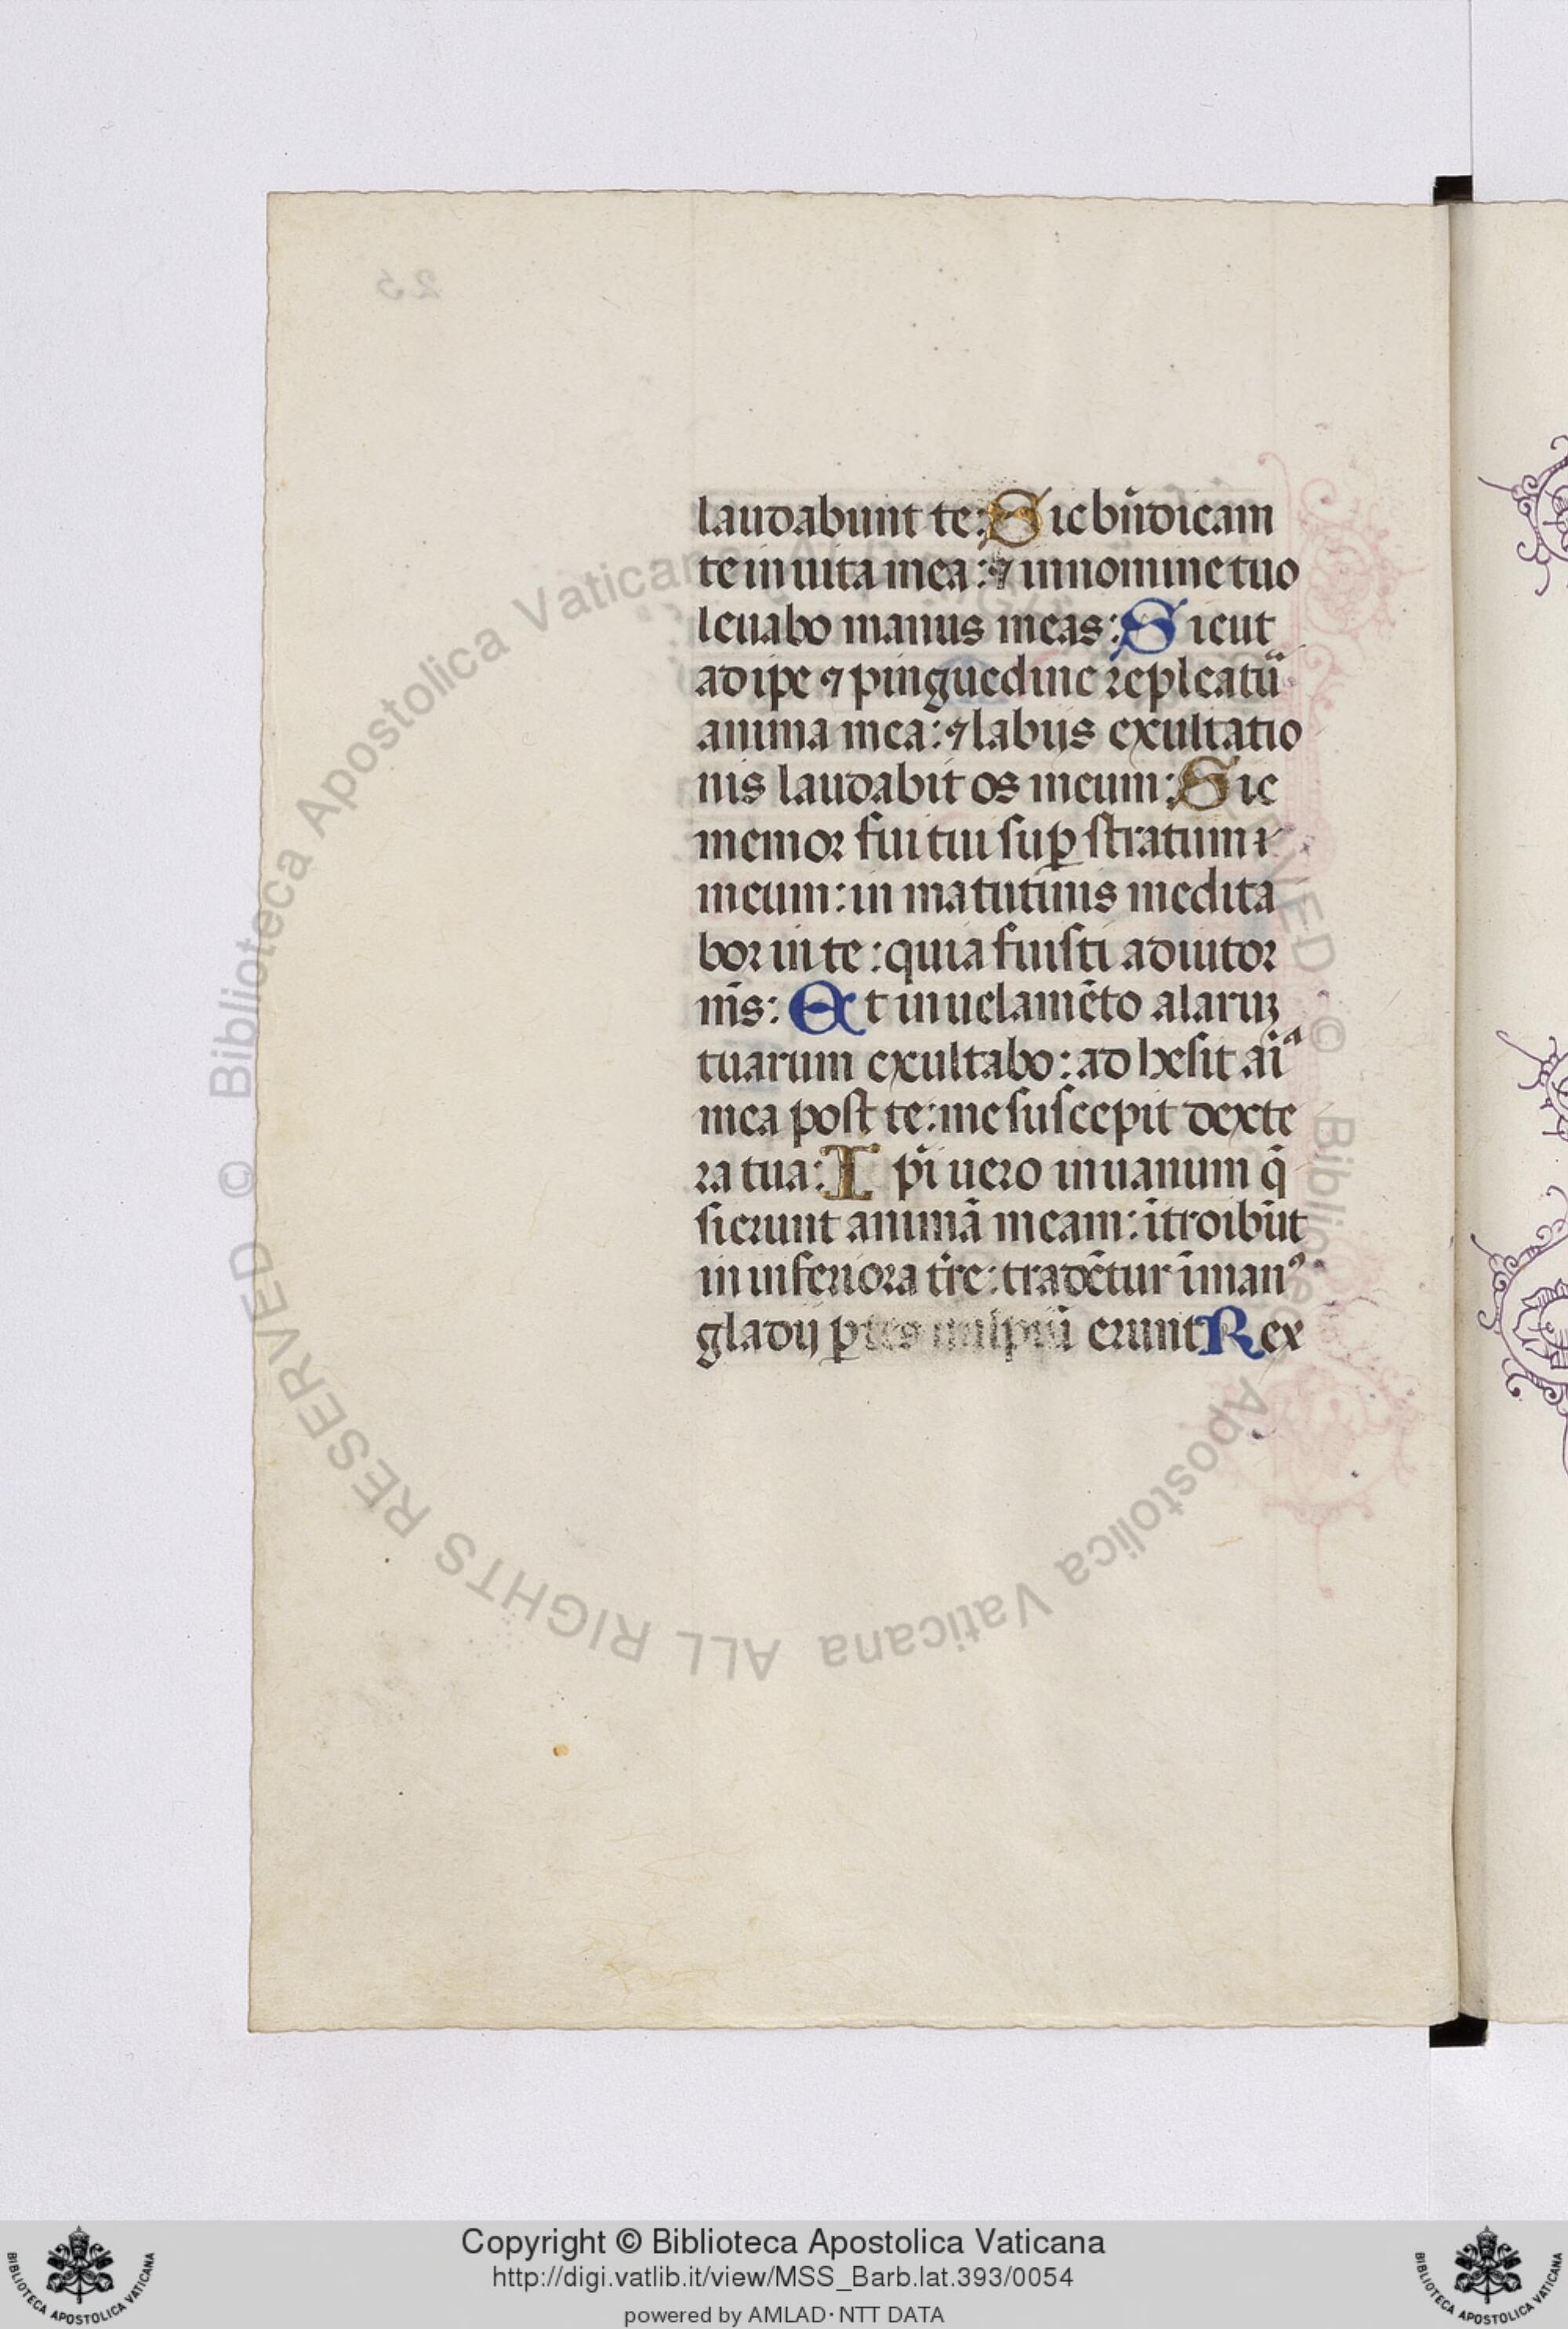 laudabunt te: Sic bn̄dicam
te in uita mea: ⁊ in nomine tuo
leuabo manus meas: Sicut
adipe ⁊ pinguedine repleatū
anima mea: ⁊ labijs exultatio
nis laudabit os meum: Sic
memor fui tui sup̱ stratum
meum: in matutinis medita
bor in te: quia fuisti adiutor
m̄s: Et in uelamēto alaruꝫ
tuarum exultabo: ad hesit aīᵃ
mea post te: me suscepit dexte
ra tua: I pī uero in uanum q̄
sierunt animā meam: ītroibūt
in inferiora tr̄e: tradētur ī manꝰ
gladij ꝑtes uulpiū erunt Rex
25
© Biblioteca Apostolica Vaticana ALL RIGHTS RESERVED
© Biblioteca Apostolica Vaticana ALL RIGHTS RESERVED
Copyright © Biblioteca Apostolica Vaticana
http://digi.vatlib.it/view/MSS_Barb.lat.393/0054
powered by AMLAD · NTT DATA
BIBLIOTECA APOSTOLICA VATICANA
BIBLIOTECA APOSTOLICA VATICANA